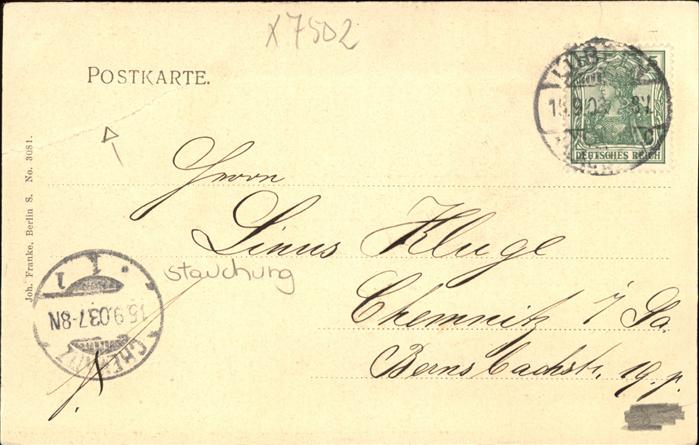 X7502
POSTKARTE.
5
15.9.03
C
DEUTSCHES REICH
Herrn
Linus Kluge
Stauchung
Chemnitz i/Sa.
Bernsbachstr. 19. p.
Joh. Franke, Berlin S. No. 3081.
1
15.9.03.7-8N
CHEMNITZ